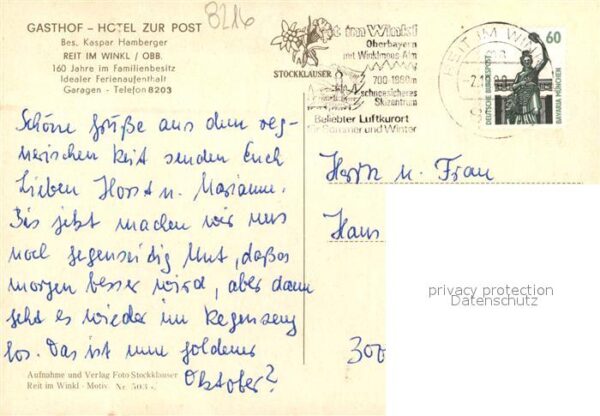 8216
GASTHOF – HOTEL ZUR POST
Bes. Kaspar Hamberger
REIT IM WINKL / OBB.
160 Jahre im Familienbesitz
Idealer Ferienaufenthalt
Garagen - Telefon 8203
it im Winkl
Oberbayern
mit Winklmoos-Alm
700-1800m
schneesicheres
Skizentrum
Beliebter Luftkurort
für Sommer und Winter
STOCKKLAUSER
REIT IM WINKL
60
DEUTSCHE BUNDESPOST
BAVARIA MÜNCHEN
Schöne Grüße aus dem reg-
nerischen Reit senden Euch
lieben Horst u. Marianne.
Bis jetzt machen wir uns
noch gegenseitig Mut, daß
morgen besser wird, aber dann
geht es wieder im Regenzeug
los. Das ist nun goldener
Oktober?
Herrn u. Frau
Hans
300
privacy protection
Datenschutz
Aufnahme und Verlag Foto Stockklauser
Reit im Winkl - Motiv. Nr.